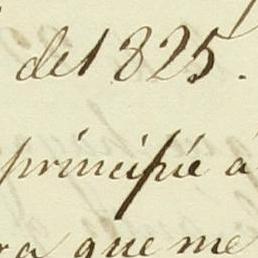 de 1825.
principié á
ra que me